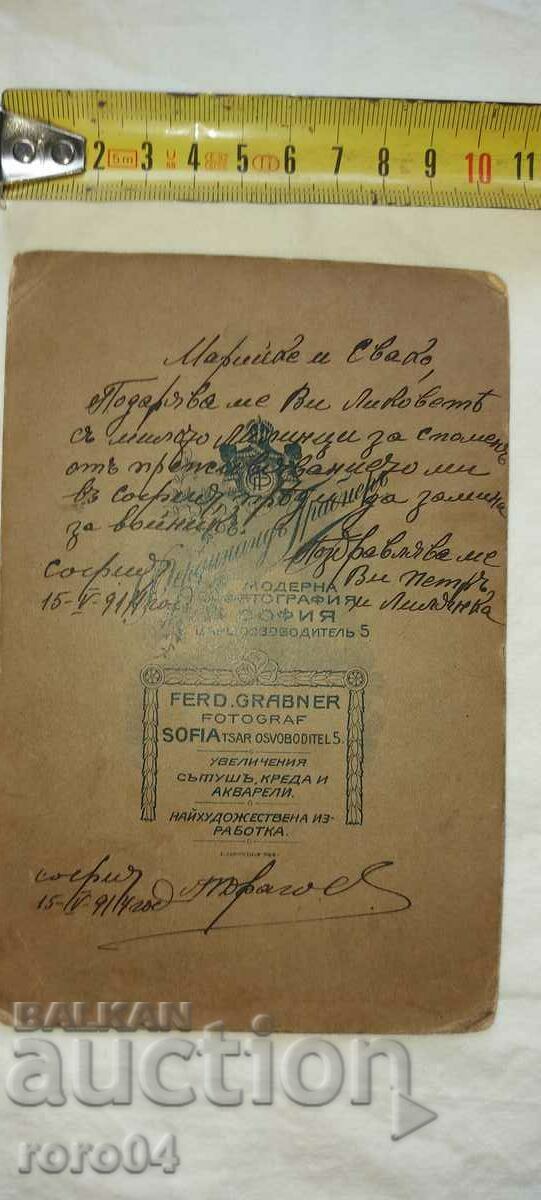 2 3 4 5 6 7 8 9 10 11
5m
Марийке и Свако,
Подаряваме Ви Ликоветѣ
съ милото за споменъ
отъ ми
въ София, да замина
за войникъ.
Поздравляваме
София Ви Петръ
15-V-914 год и Лилянка
Фердинандъ Грабнеръ
МОДЕРНА
ФОТОГРАФИЯ
СОФИЯ
ЦАРЬ ОСВОБОДИТЕЛЬ 5
FERD. GRABNER
FOTOGRAF
SOFIA TSAR OSVOBODITEL 5.
УВЕЛИЧЕНИЯ
СЪ ТУШЪ, КРЕДА И
АКВАРЕЛИ.
НАЙХУДОЖЕСТВЕНА ИЗ-
РАБОТКА.
София
15-V-914 год
BALKAN
auction
roro04